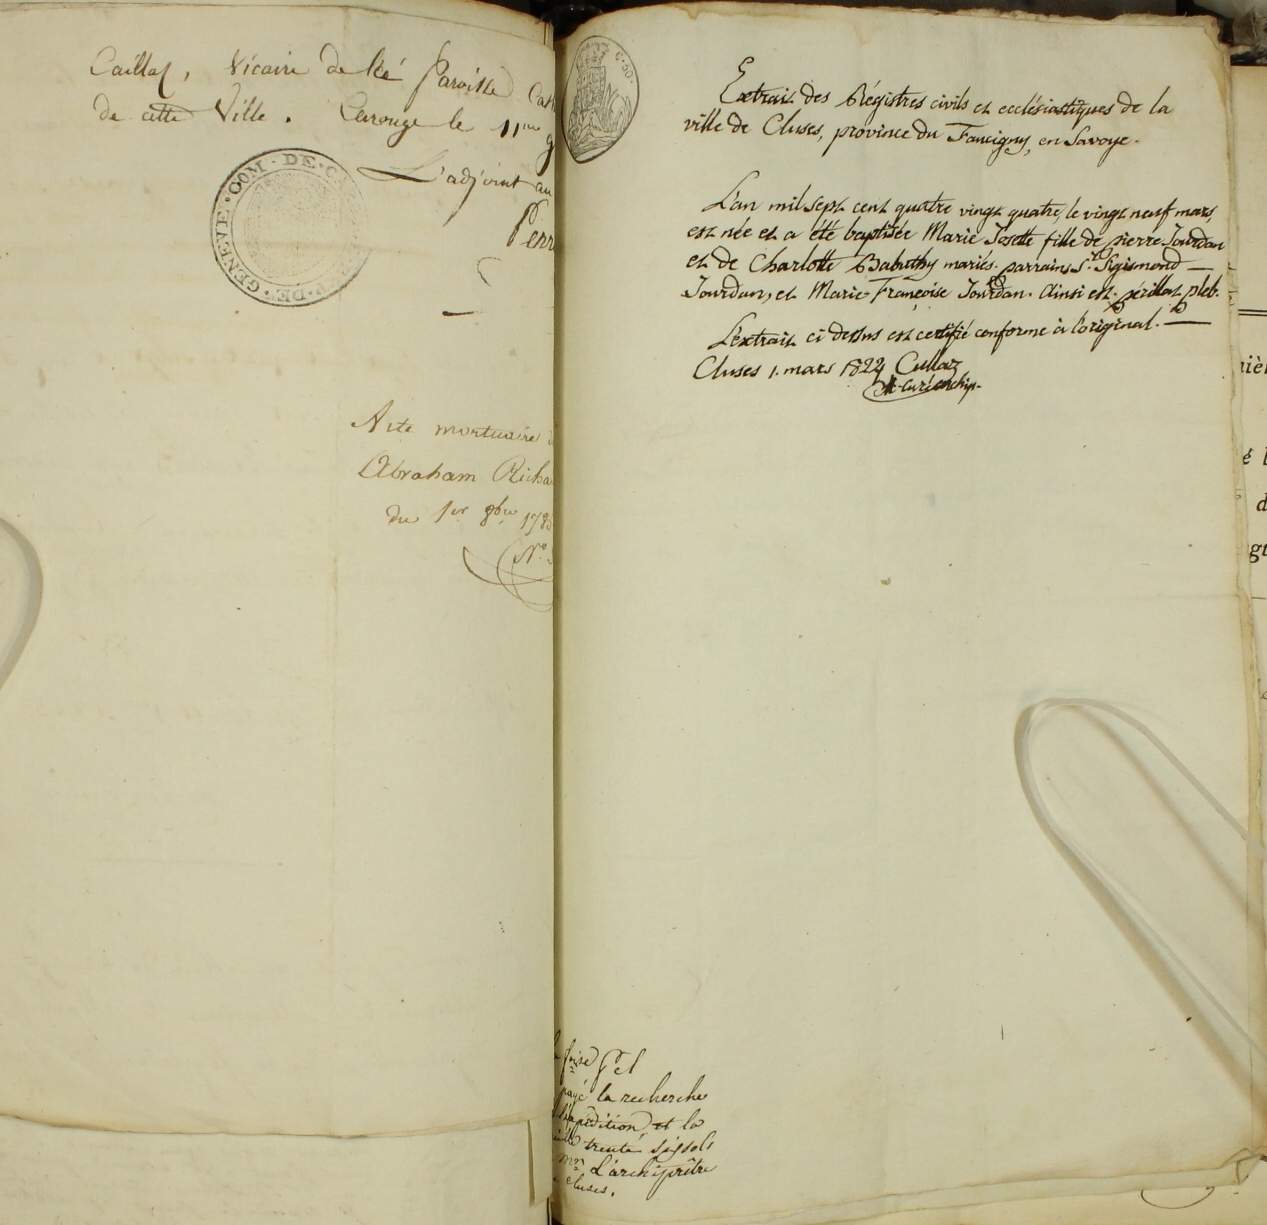 Caillat, Vicaire de la Paroisse Cat
de cette Ville. Carouge le 11me
L'adjoint au
Perr
COM · DE · CA
DEP · DE · GENEVE
Acte mortuaire
Abraham Richa
du 1er 9bre 178
N°
C. 50.
Extrait des Régistres civils et ecclésiastiques de la
ville de Cluses, province du Faucigny, en Savoye.
L'an mil sept cent quatre vingt quatre, le vingt neuf mars,
est née et a été baptisée Marie Josette fille de pierre Jourdan
et de Charlotte Babuthy mariés. parrains Sr. Sigismond
Jourdan, et Marie Françoise Jourdan. Ainsi est. périllat pleb.
L'extrait ci dessus est certifié conforme à l'original.
Cluses 1. mars 1824 Cullaz
curé archip.
payé la recherche
l'expédition et la
trente six sols
Mr. L'archiprêtre
cluses.